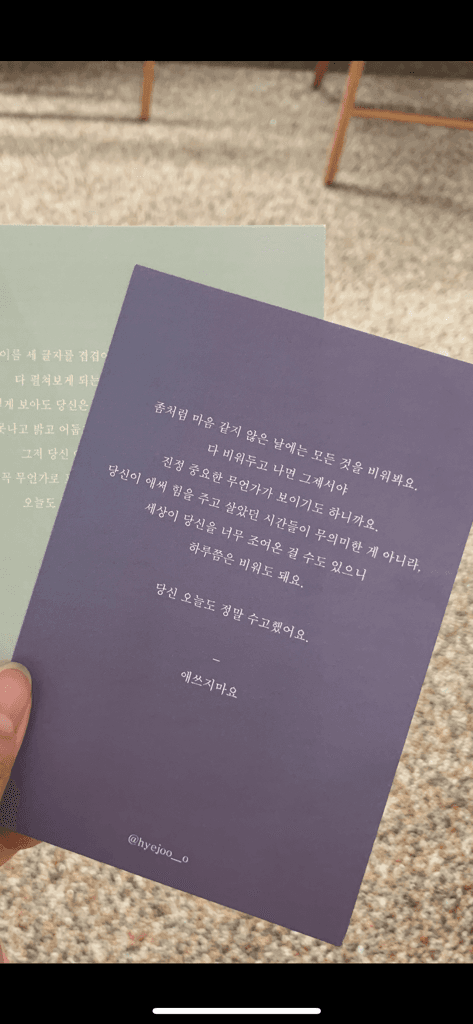 이름 세 글자를 겹겹이
다 펼쳐보게 되는
보아도 당신은
밝고
그저 당신
꼭 무언가로
오늘도
좀처럼 마음 같지 않은 날에는 모든 것을 비워봐요.
다 비워두고 나면 그제서야
진정 중요한 무언가가 보이기도 하니까요.
당신이 애써 힘을 주고 살았던 시간들이 무의미한 게 아니라,
세상이 당신을 너무 조여온 걸 수도 있으니
하루쯤은 비워도 돼요.
당신 오늘도 정말 수고했어요.
–
애쓰지마요
@hyejoo__o